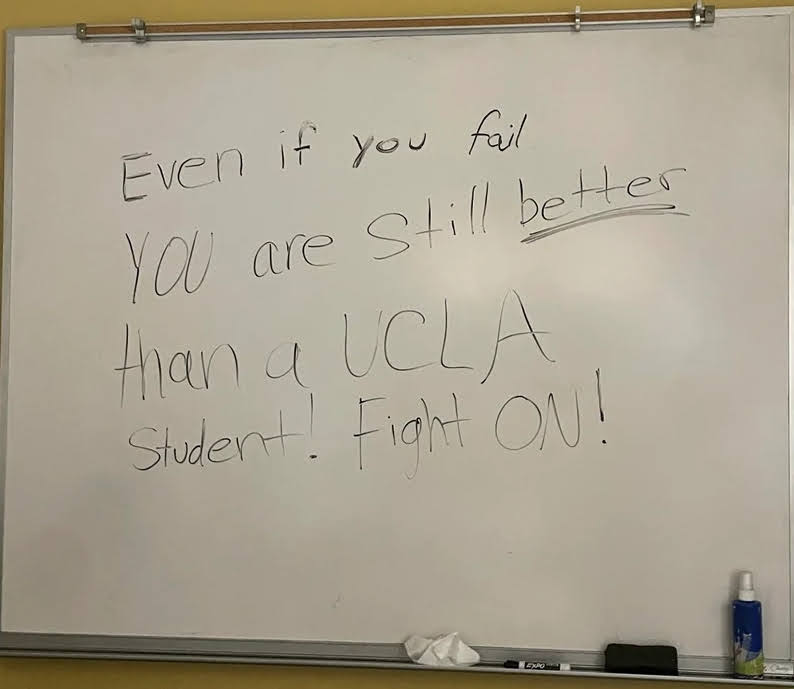 Even if you fail
YOU are Still better
than a UCLA
Student! Fight ON!
EXPO